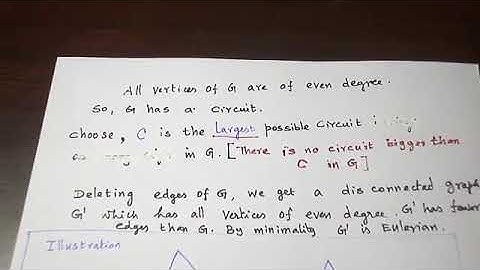 All vertices of G are of even degree.
So, G has a circuit.
Choose, C is the Largest possible Circuit
in G. [There is no circuit bigger than
C in G]
Deleting edges of G, we get a disconnected graph
G' which has all vertices of even degree. G' has fewer
edges than G. By minimality G' is Eulerian.
Illustration